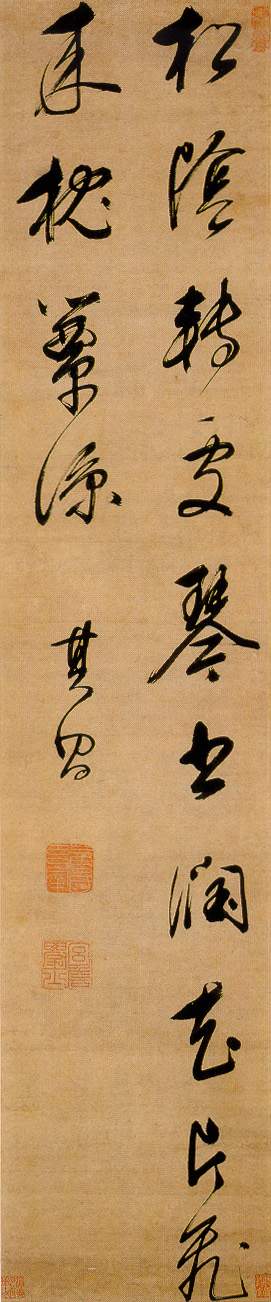 松陰轉處琴書潤花片飛
來枕簟凉
其昌